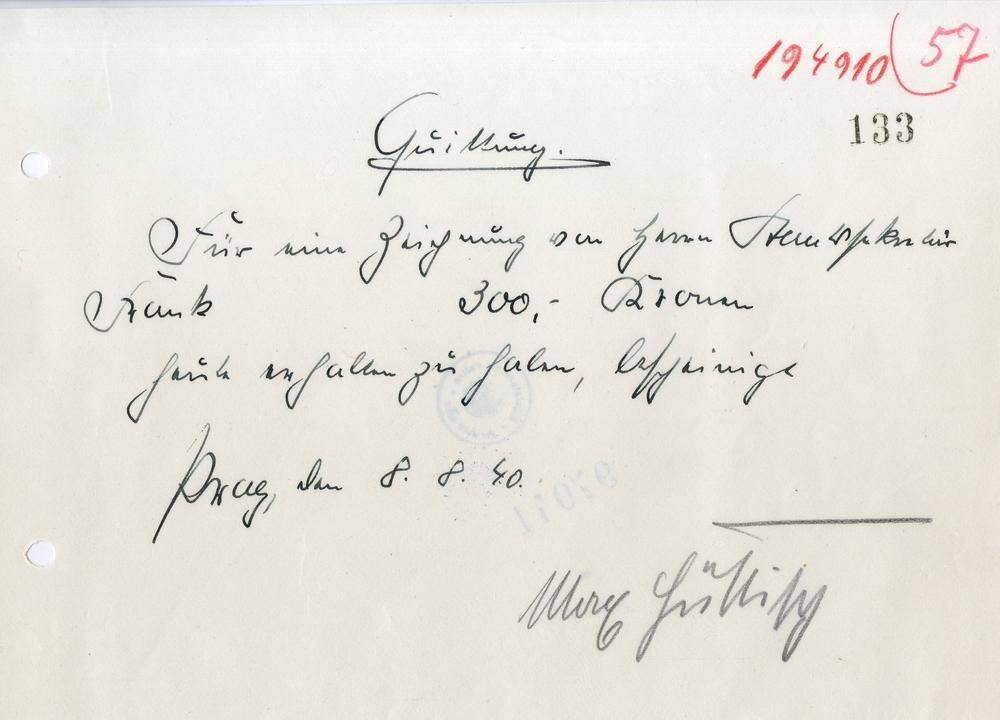 194910 57
133
Quittung.
Für eine Zeichnung von Herrn Staatssekretär
Frank 300,- Kronen
heute erhalten zu haben, bescheinigt
Prag, den 8. 8. 40.
Max